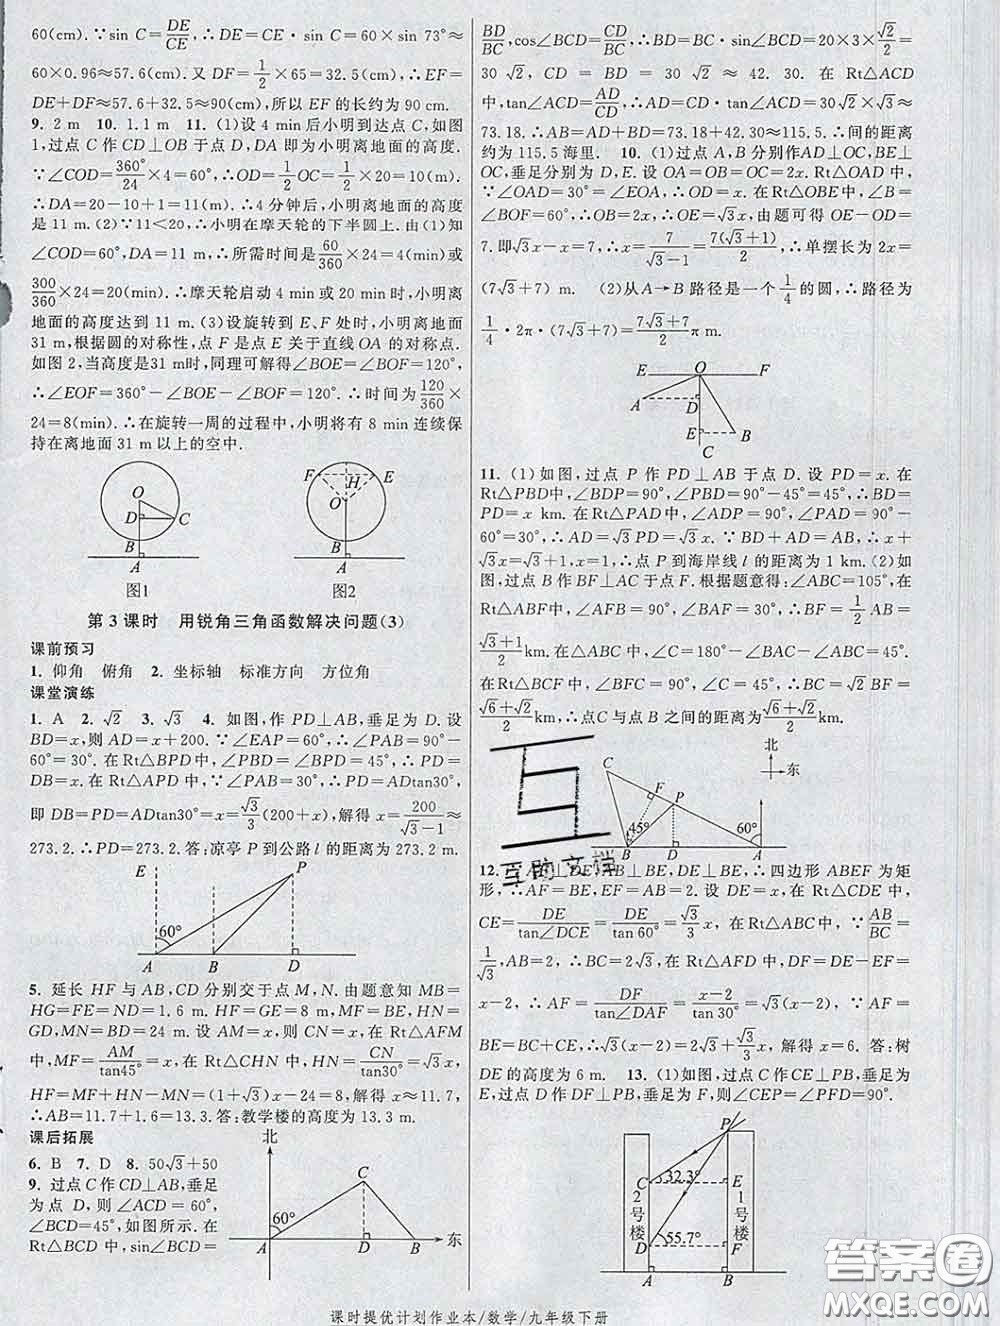 60(cm).∵sin C=DE/CE,∴DE=CE·sin C=60×sin 73°≈
60×0.96≈57.6(cm).又 DF=1/2×65=32.5(cm),∴EF=
DE+DF≈57.6+32.5≈90(cm),所以 EF 的长约为 90 cm.
9. 2 m  10. 1.1 m  11. (1)设 4 min 后小明到达点 C,如图
1,过点 C 作 CD⊥OB 于点 D,DA 即为小明离地面的高度.
∵∠COD=360°/24×4=60°,∴OD=1/2OC=1/2×20=10(m).
∴DA=20-10+1=11(m).∴4 分钟后,小明离地面的高度
是 11 m.(2)∵11<20,∴小明在摩天轮的下半圆上.由(1)知
∠COD=60°,DA=11(m).∴所需时间是60/360×24=4(min)或
300/360×24=20(min).∴摩天轮启动 4 min 或 20 min 时,小明离
地面的高度达到 11 m.(3)设旋转到 E、F 处时,小明离地面
31 m,根据圆的对称性,点 F 是点 E 关于直线 OA 的对称点.
如图 2,当高度是31 m时,同理可解得∠BOE=∠BOF=120°,
∴∠EOF=360°-∠BOE-∠BOF=120°.∴时间为120/360×
24=8(min).∴在旋转一周的过程中,小明将有 8 min 连续保
持在离地面 31 m 以上的空中.
O
D
C
B
A
图1
F
E
H
O
B
A
图2
第 3 课时  用锐角三角函数解决问题(3)
课前预习
1. 仰角  俯角  2. 坐标轴  标准方向  方位角
课堂演练
1. A  2. √2  3. √3  4. 如图,作 PD⊥AB,垂足为 D.设
BD=x,则 AD=x+200.∵∠EAP=60°,∴∠PAB=90°-
60°=30°.在 Rt△BPD 中,∵∠PBD=45°,∴PD=
DB=x.在 Rt△APD 中,∵∠PAB=30°,∴PD=ADtan30°,
即 DB=PD=ADtan30°=√3/3(200+x),解得 x=200/(√3-1)≈
273.2.∴PD=273.2.答:凉亭 P 到公路 l 的距离为 273.2 m.
E
P
60°
A
B
D
5. 延长 HF 与 AB,CD 分别交于点 M,N.由题意知 MB=
HG=FE=ND=1.6 m.HF=GE=8 m,MF=BE,HN=
GD,MN=BD=24 m.设 AM=x,则 CN=x,在 Rt△AFM
中,MF=AM/tan45°=x,在 Rt△CHN 中,HN=CN/tan30°=√3x,
HF=MF+HN-MN=(1+√3)x-24=8.解得 x≈11.7.
∴AB=11.7+1.6=13.3.答:教学楼的高度为 13.3 m.
课后拓展
6. B  7. D  8. 50√3+50
9. 过点 C 作 CD⊥AB,垂足
为点 D,则∠ACD=60°,
∠BCD=45°,如图所示.在
Rt△BCD 中,sin∠BCD=
北
C
60°
A
D
B
东
BD/BC,cos∠BCD=CD/BC,∴BD=BC·sin∠BCD=20×3×√2/2=
30√2,CD=BD=30√2≈42.30.在 Rt△ACD
中,tan∠ACD=AD/CD,∴AD=CD·tan∠ACD=30√2×√3≈
73.18.∴AB=AD+BD=73.18+42.30≈115.5.∴间的距离
约为 115.5 海里.  10. (1)过点 A,B 分别作AD⊥OC,BE⊥
OC,垂足分别为 D,E.设 OA=OB=OC=2x.在 Rt△AOD 中,
∵∠OAD=30°=∠EOA,∴OD=x.在 Rt△OBE 中,∠B=
∠BOF=60°,∴OB=2x,∴OE=√3x,由题可得 OE-OD=
7.即√3x-x=7,∴x=7/(√3-1)=7(√3+1)/2,∴单摆长为 2x=
(7√3+7) m.  (2)从 A→B 路径是一个1/4的圆,∴路径为
1/4·2π·(7√3+7)=(7√3+7)/2 π m.
E
O
F
A
D
E
B
C
11. (1)如图,过点 P 作 PD⊥AB 于点 D.设 PD=x.在
Rt△PBD中,∠BDP=90°,∠PBD=90°-45°=45°,∴BD=
PD=x km.在 Rt△PAD 中,∠ADP=90°,∠PAD=90°-
60°=30°,∴AD=√3PD=√3x.∵BD+AD=AB,∴x+
√3x=√3+1,x=1,∴点 P 到海岸线 l 的距离为 1 km.(2)如
图,过点 B 作 BF⊥AC 于点 F.根据题意得:∠ABC=105°,在
Rt△ABF中,∠AFB=90°,∠BAF=30°,∴BF=1/2AB=
(√3+1)/2 km.在△ABC 中,∠C=180°-∠BAC-∠ABC=45°.
在 Rt△BCF 中,∠BFC=90°,∠C=45°,∴BC=√2BF=
(√6+√2)/2 km,∴点C 与点 B 之间的距离为(√6+√2)/2 km.
北
东
C
F
P
45°
60°
B
D
A
12. AB⊥BE,DE⊥BE,∴四边形 ABEF 为矩
形,∴AF=BE,EF=AB=2.设 DE=x,在 Rt△CDE 中,
CE=DE/tan∠DCE=DE/tan 60°=√3/3 x,在 Rt△ABC 中,∵AB/BC=
1/√3,AB=2,∴BC=2√3,在 Rt△AFD 中,DF=DE-EF=
x-2,∴AF=DF/tan∠DAF=(x-2)/tan 30°=√3(x-2).∵AF=
BE=BC+CE,∴√3(x-2)=2√3+√3/3 x,解得 x=6.答:树
DE 的高度为 6 m.  13. (1)如图,过点 C 作CE⊥PB,垂足为
E,过点 D 作 DF⊥PB,垂足为 F,则∠CEP=∠PFD=90°.
P
C
32.3°
E
2号楼
1号楼
D
55.7°
F
A
B
互助文档
答案圈
课时提优计划作业本/数学/九年级下册